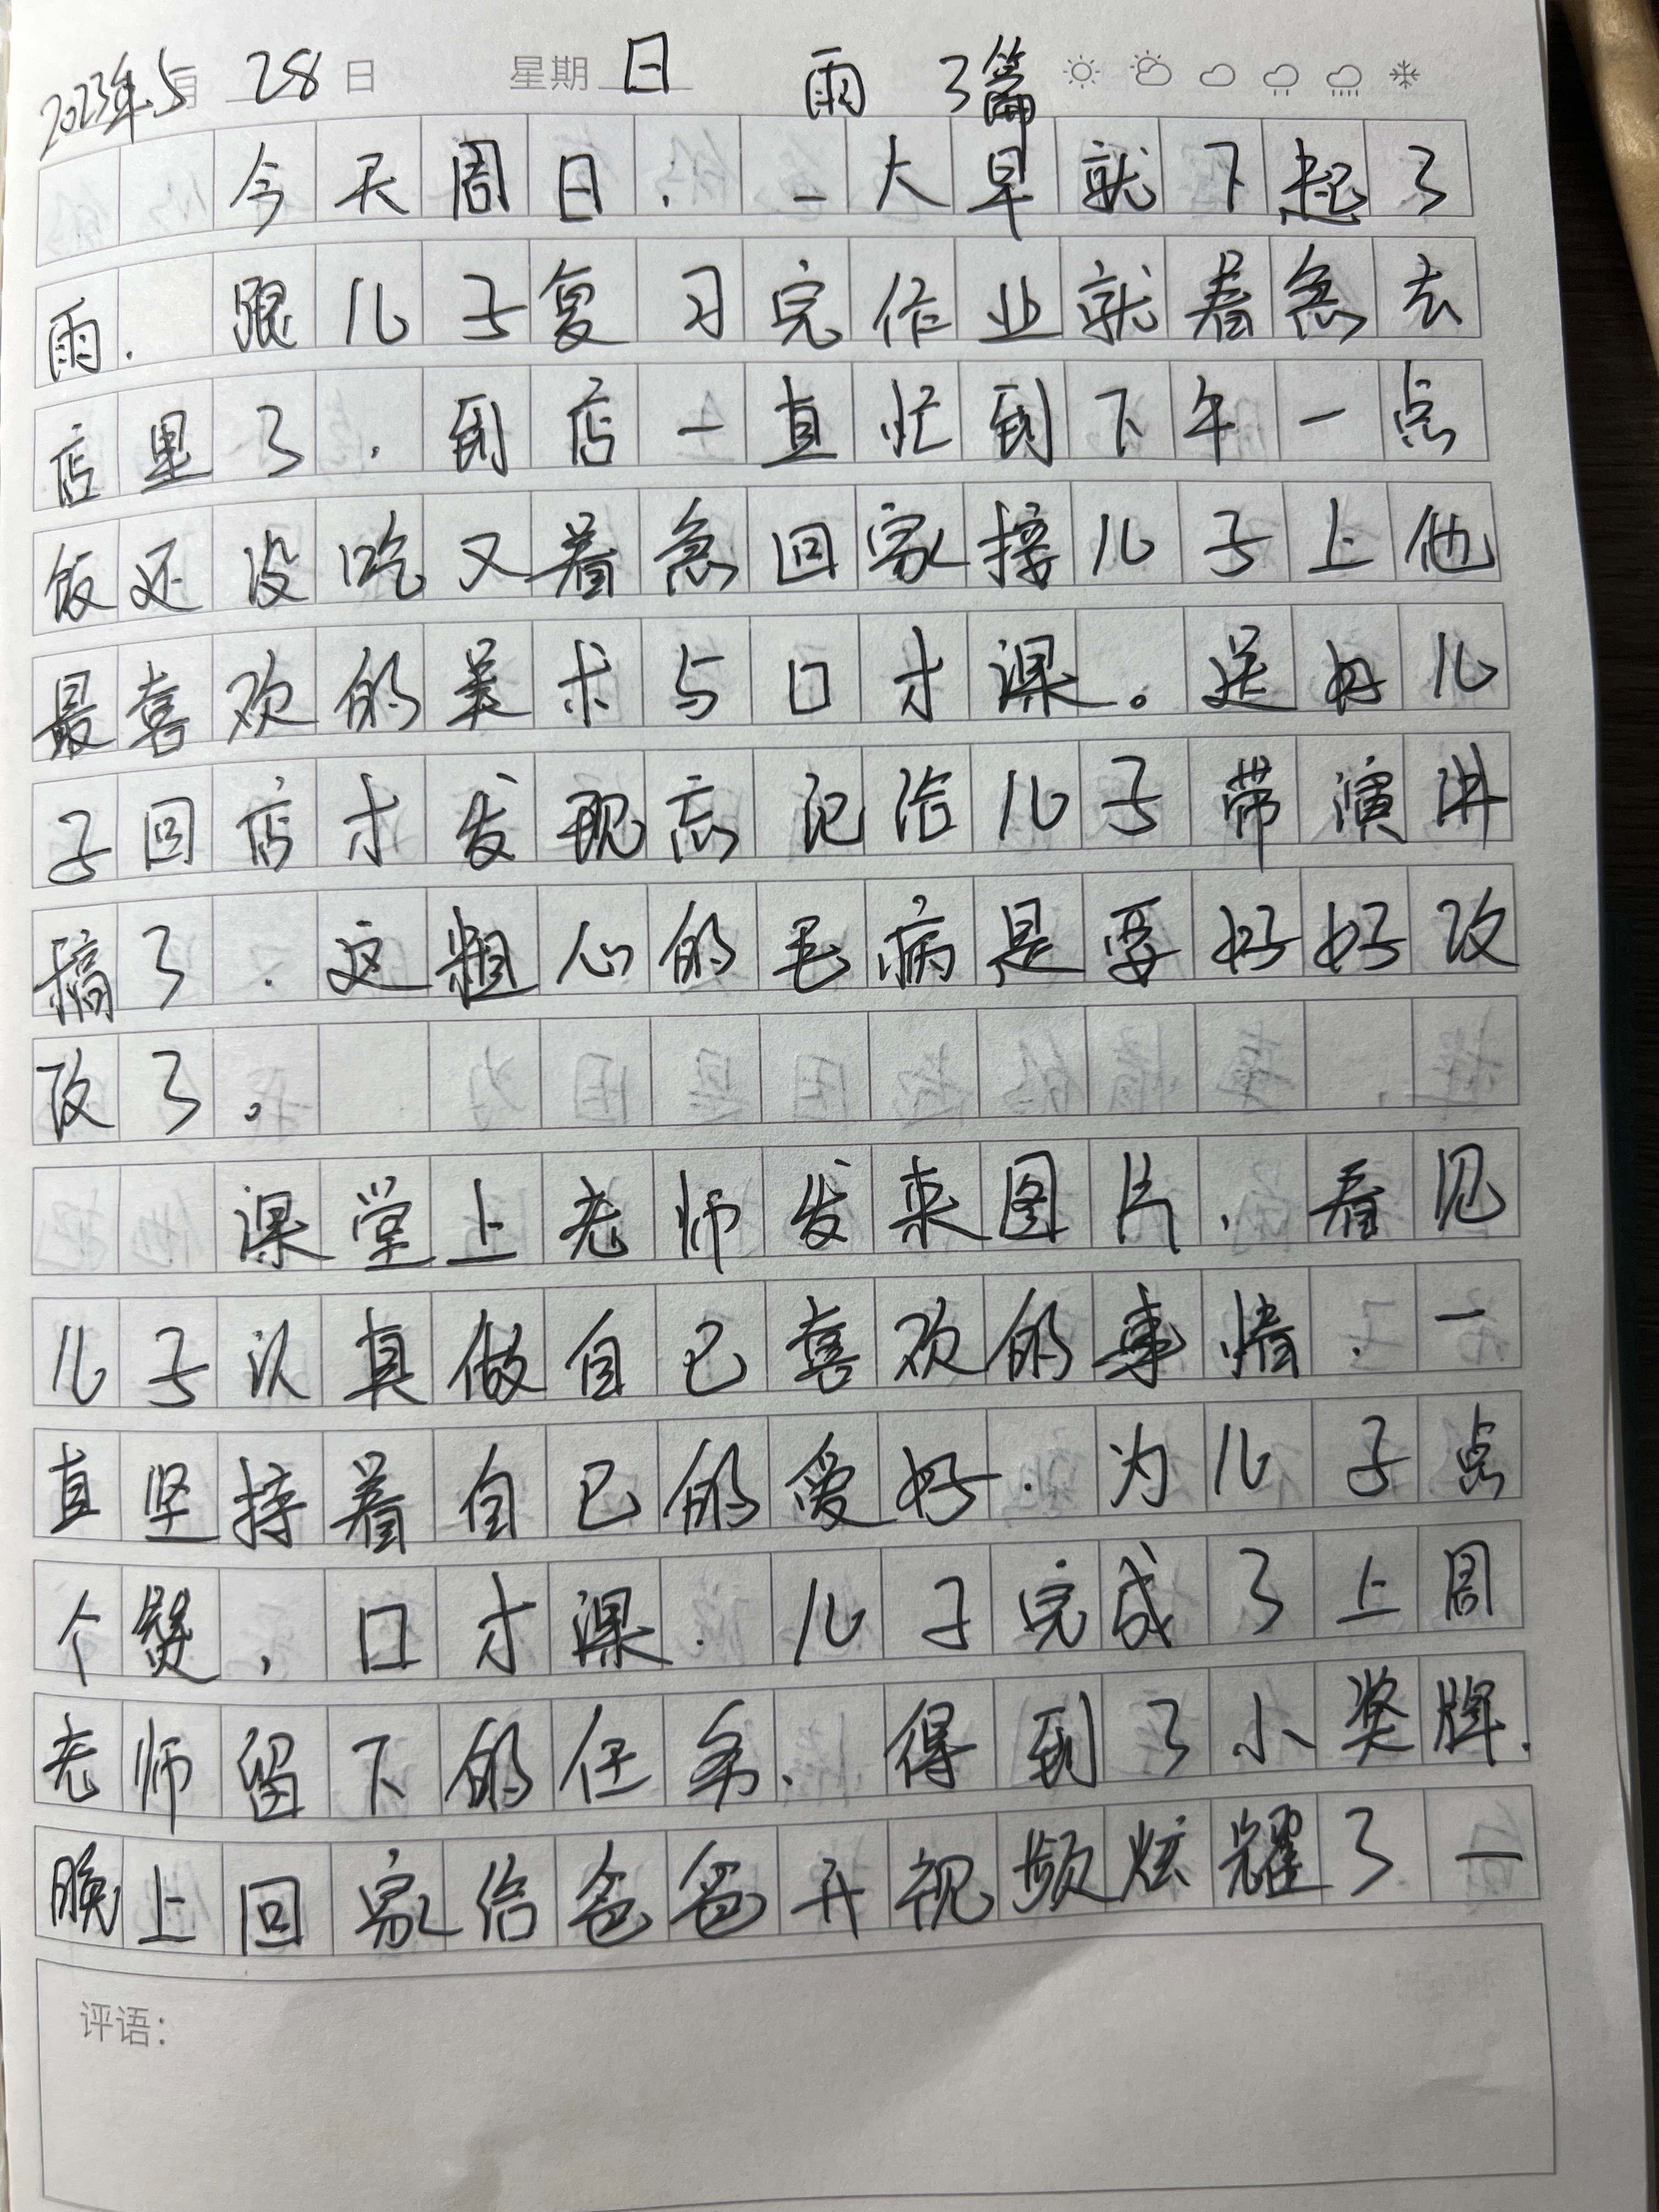 2023年5月28日 星期日 雨 3篇
今天周日.一大早就下起了
雨.跟儿子复习完作业就着急去
店里了.到店一直忙到下午一点
饭还没吃又着急回家接儿子上他
最喜欢的美术与口才课。送好儿
子回店才发现忘记给儿子带演讲
稿了.这粗心的毛病是要好好改
改了。
课堂上老师发来图片.看见
儿子认真做自己喜欢的事情.一
直坚持着自己的爱好.为儿子点
个赞,口才课.儿子完成了上周
老师留下的任务、得到了小奖牌.
晚上回家给爸爸开视频炫耀了一
评语: